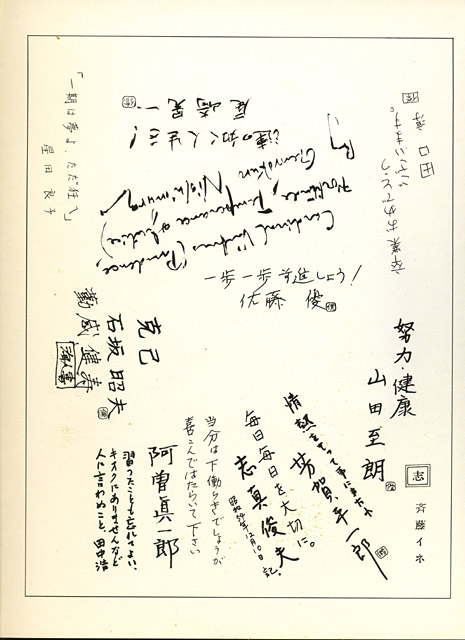 「一期は夢よ、ただ狂へ」
星田 良子
尾崎 晃一
蓮の如く人生を!
卒業おめでとう
ございます。
Cardinal Virtues (Prudence,
Fortitude, Temperance & Justice)
By Genrokuro Nishimura
一歩一歩前進しよう!
佐藤 優
克己
石坂 昭夫
努力・健康
山田 至朗
志
斉藤イネ
情熱をもって事にあたれ
芳賀 幸一郎
毎日毎日を大切に。
志真 俊夫
昭和54年12月10日 記.
当分は下働らきでしょうが
喜こんではたらいて下さい
阿曽 眞一郎
習ったことも忘れてよい、
キオクにありませんなど
人に言わぬこと、田中浩